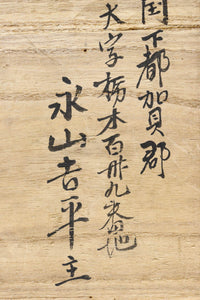 国下都賀郡
大字栃木百卅九番地
永山吉平主